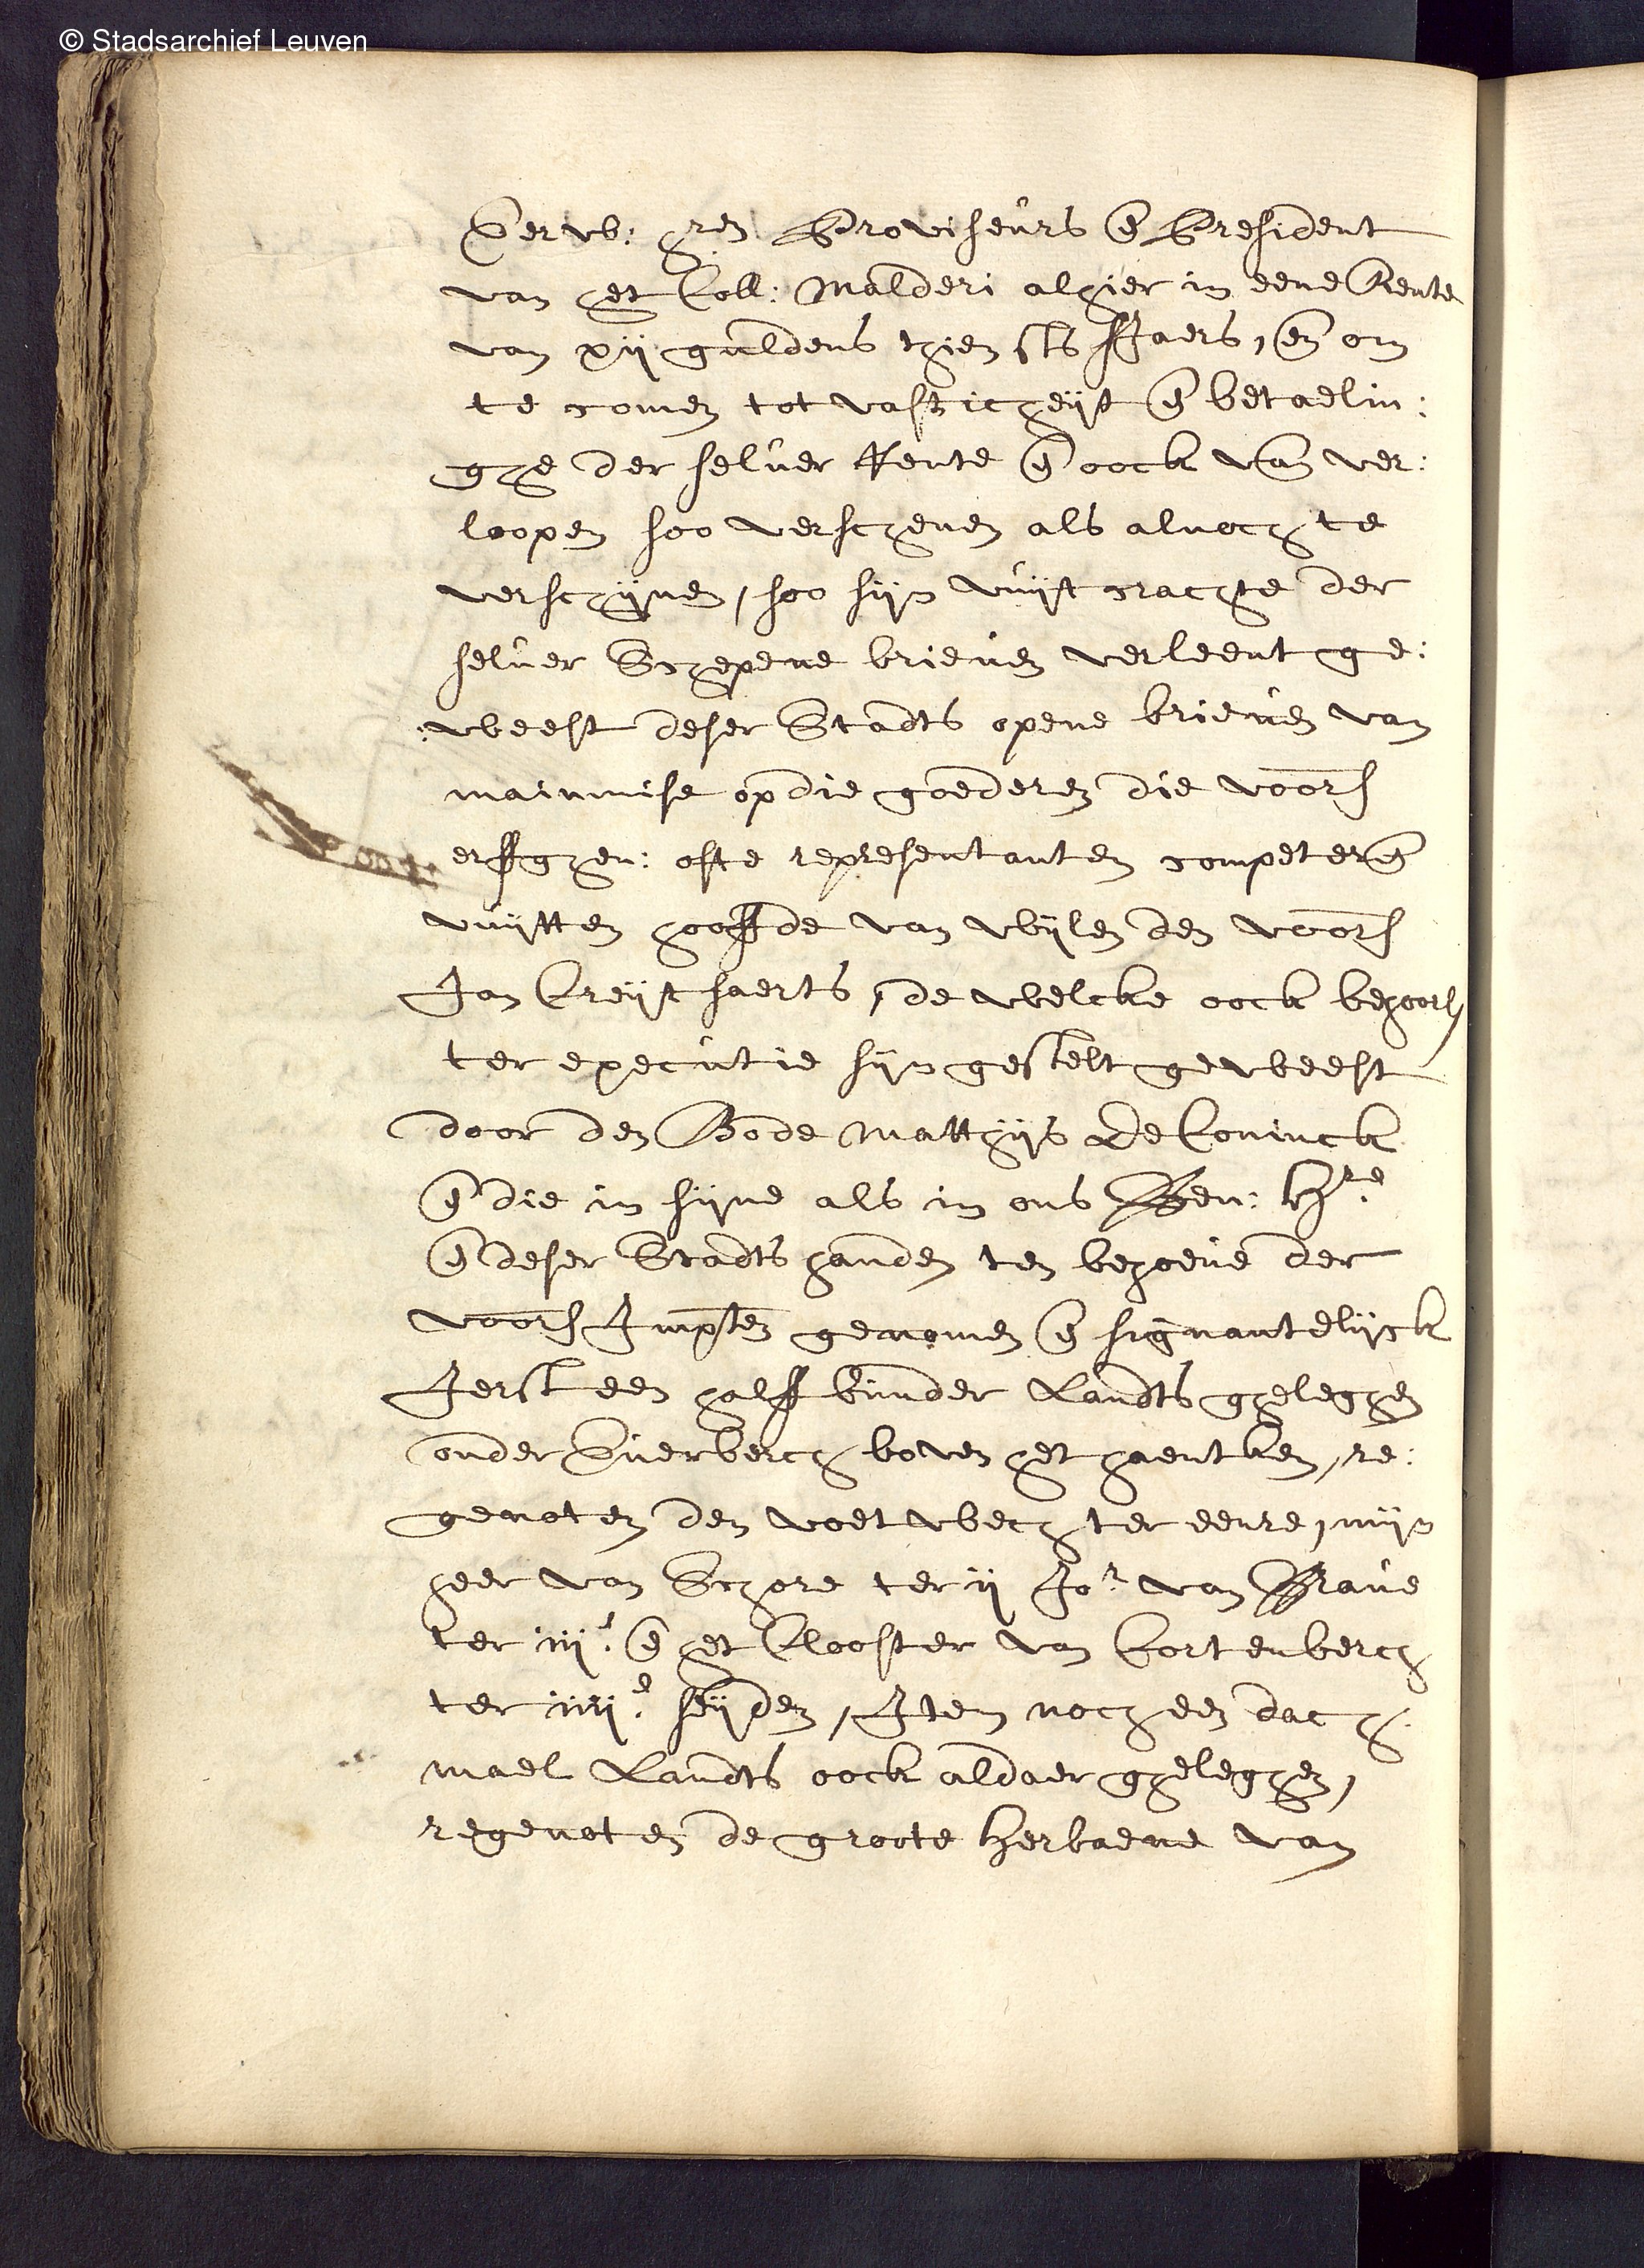 © Stadsarchief Leuven
Eerw: hren Proviseurs en(de) President
van het Coll: Malderi alhier in eene Rente
van xij guldens thien sts sjaers, en(de) om
te comen tot vasticheijt en(de) betaelin:
ghe der selver Rente en(de) oock van ver:
loopen soo verschenen als alnoch te
verschijnen, soo sijn vuijt crachte der
selver Schepene brieven verleent ge:
:weest deser Stadts opene brieven van
mainmise op die goederen die voors
erffghen: ofte representanten competeren(de)
vuijtten hooffde van wijlen den voors
Jan Creijtsaerts, de welcke oock behoorl
ter executie sijn gestelt geweest
door den Bode Matthijs De Coninck
en(de) die in sijne als in ons Gen: Hre
en(de) deser Stadts handen ten behoeve der
voors Impten genomen en(de) signantelijck
Ierst een halff bunder Landts gheleghen
onder Everberch boven het haentken, re:
genoten den voetwech ter eenre, mijn
heer van Schore ter ij Jor van Grave
ter iij. en(de) het Clooster van Cortenberch
ter iiij.e seijden, Item noch een dach
mael Landts oock aldaer gheleghen,
regenoten de groote Herbaene van